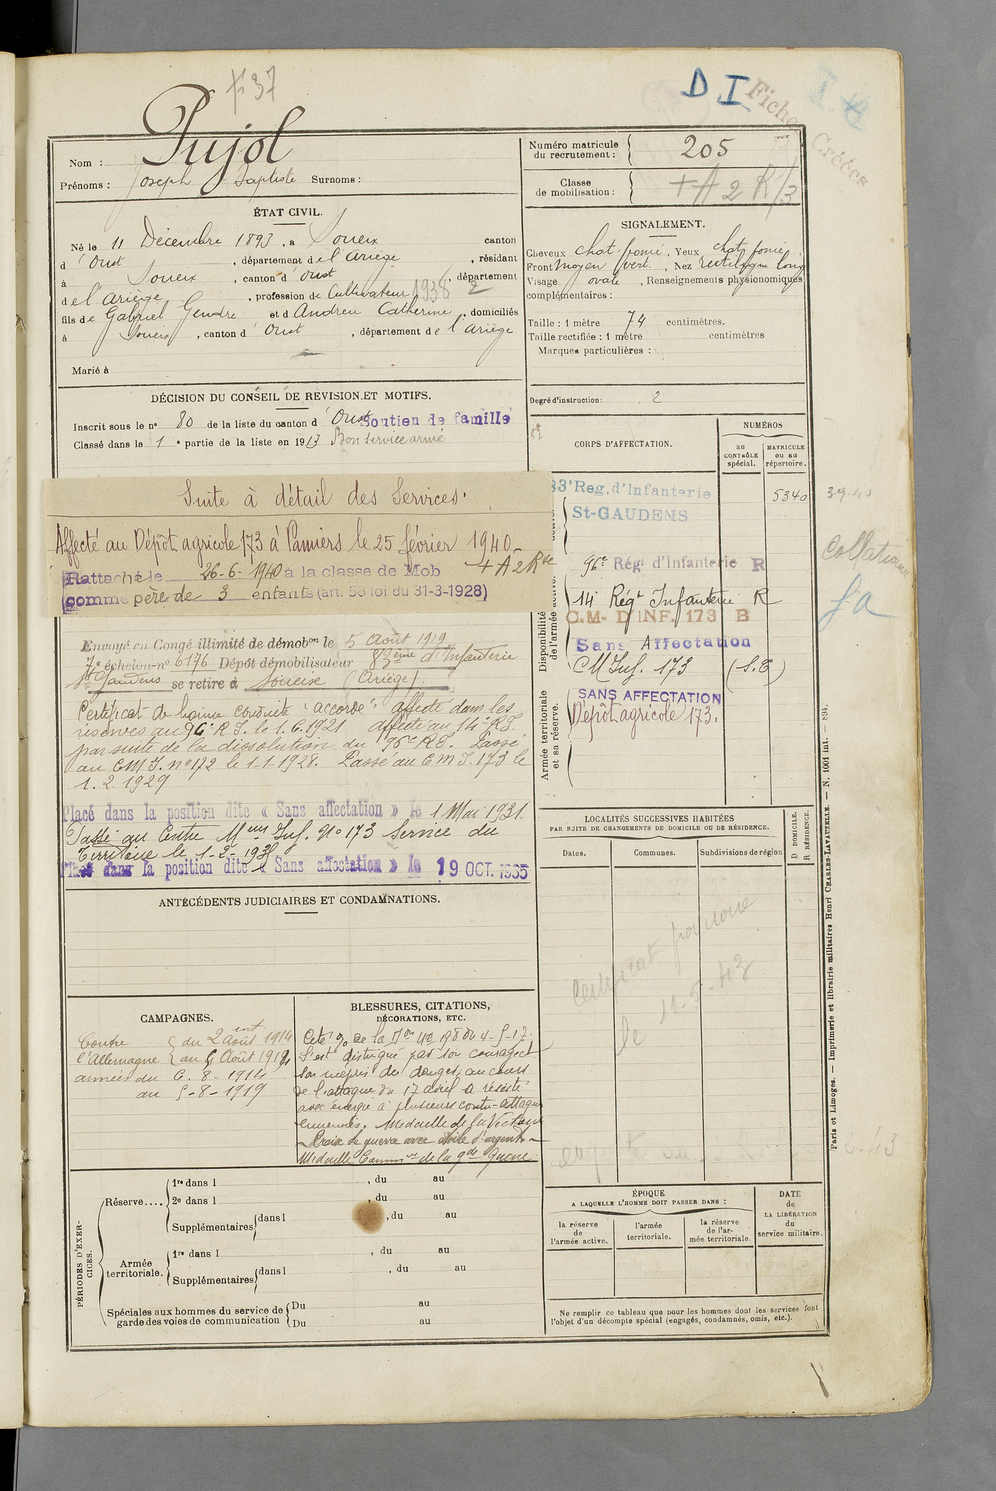 p 37
D I
Fiches Créées
Pujol
Nom :
Prénoms : Joseph Baptiste Surnoms :
Numéro matricule du recrutement : 205
Classe de mobilisation : + A 2 R/3
ÉTAT CIVIL.
Né le 11 Décembre 1893, à Soueix canton
d' Oust, département de l'Ariège, résidant
à Soueix, canton d' Oust, département
de l'Ariège, profession de Cultivateur 1938 2
fils de Gabriel Gendre et d' Andreu Catherine, domiciliés
à Soueix, canton d' Oust, département de l'Ariège
Marié à
SIGNALEMENT.
Cheveux chat. foncé, Yeux chat. foncé,
Front moyen vert., Nez rectiligne long
Visage ovale, Renseignements physionomiques
complémentaires :
Taille : 1 mètre 74 centimètres.
Taille rectifiée : 1 mètre centimètres
Marques particulières :
Degré d'instruction : 2
DÉCISION DU CONSEIL DE REVISION ET MOTIFS.
Inscrit sous le n° 80 de la liste du canton d' Oust Soutien de famille
Classé dans la 1e partie de la liste en 1913 Bon service armé
Suite à détail des Services.
Affecté au Dépôt agricole 173 à Pamiers le 25 février 1940
+ A 2 Rve
Rattaché le 26-6-1940 à la classe de Mob
comme père de 3 enfants (art. 58 loi du 31-3-1928)
Envoyé en Congé illimité de démobon le 5 Août 1919
7e échelon n° 6176 Dépôt démobilisateur 83ème d'Infanterie
St Gaudens se retire à Soueix (Ariège)
Certificat de bonne conduite "accordé" affecté dans les
réserves au 96e R.I. le 1.6.1921 affecté au 14e R.I.
par suite de la dissolution du 96e R.I. Passé
au C.M.I. n° 172 le 1.1.1928. Passé au C.M.I. 173 le
1.2.1929
Placé dans la position dite « Sans affectation » le 1 Mai 1931.
Passé au Centre Mom Inf. No 173 Service du
Territoire le 1-2-193
Placé dans la position dite « Sans affectation » le 19 OCT. 1935
CORPS D'AFFECTATION.
NUMÉROS
au CONTRÔLE spécial.
MATRICULE ou au répertoire.
Disponibilité et réserve de l'armée active.
83e Reg. d'Infanterie 5340
St-GAUDENS
96e Rég. d'Infanterie R
14e Régt Infanterie R
C.M. D'INF. 173 B
Sans Affectation
CM Inf. 173 (S.T)
Armée territoriale et sa réserve.
SANS AFFECTATION
Dépôt agricole 173.
39-40
ANTÉCÉDENTS JUDICIAIRES ET CONDAMNATIONS.
LOCALITÉS SUCCESSIVES HABITÉES
PAR SUITE DE CHANGEMENTS DE DOMICILE OU DE RÉSIDENCE.
Dates. Communes. Subdivisions de région
D DOMICILE. R RÉSIDENCE.
Certificat
le 11-5-43
CAMPAGNES.
Contre l'Allemagne du 2 août 1914
au 5 Août 1919
armées du 6-8-1914
au 5-8-1919
BLESSURES, CITATIONS,
DÉCORATIONS, ETC.
Cité
S'est distingué par son courage et
son mépris du danger, au cours
de l'attaque du 17 avril a résisté
avec énergie à plusieurs contre-attaques
ennemies. Médaille de la Victoire
Croix de guerre avec étoile d'argent
Médaille Commve de la gde Guerre
PÉRIODES D'EXERCICES.
Réserve....
1re dans l , du au
2e dans l , du au
Supplémentaires dans l , du au
Armée territoriale.
1re dans l , du au
Supplémentaires dans l , du au
Spéciales aux hommes du service de garde des voies de communication
Du au
Du au
ÉPOQUE
A LAQUELLE L'HOMME DOIT PASSER DANS :
la réserve de l'armée active.
l'armée territoriale.
la réserve de l'armée territoriale.
DATE de LA LIBÉRATION du service militaire.
Ne remplir ce tableau que pour les hommes dont les services font
l'objet d'un décompte spécial (engagés, condamnés, omis, etc.).
Paris et Limoges. — Imprimerie et librairie militaires Henri CHARLES-LAVAUZELLE. — N. 1001 int. — 894.